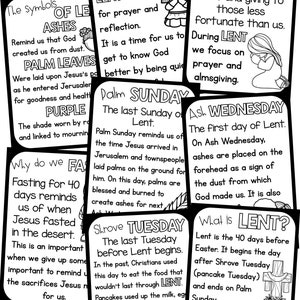 The Symbols
OF LE
ASHES
Remind us that God
created us from dust.
PALM LEAVES
Were laid upon Jesus's p
as he entered Jerusalem
for goodness and health
PURPLE
The shade worn by ro
and linked to mournin
for prayer and
reflection.
It is a time for us to
get to know God
better by being quie
and giving to
those less
fortunate than us.
During LENT
we focus on
prayer and
almsgiving.
Why do we FA
Fasting for 40
days reminds
us of when
Jesus fasted
in the desert.
This is an important
when we give up some
important to remind u
the sacrifices Jesus m
for us.
Palm SUNDAY
The last Sunday of
Lent.
Palm Sunday reminds us of
the time Jesus arrived in
Jerusalem and townspeople
laid palms on the ground for
him. On this day, palms are
blessed and burned to
create ashes for next
Ash WEDNESDAY
The first day of Lent.
On Ash Wednesday,
ashes are placed on the
forehead as a sign of
the dust from which
God made us. It is also
Shrove TUESDAY
The last Tuesday
before Lent begins.
In the past, Christians used
this day to eat the food that
wouldn't last through LENT
Pancakes used up the milk, eg
What is LENT?
Lent is the 40 days before
Easter. It begins the day
after Shrove Tuesday
(pancake Tuesday)
and ends on Palm
Sunday